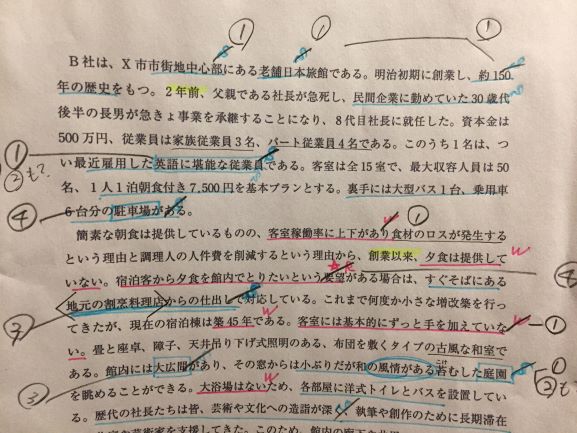 ① ① ①
B社は、X市市街地中心部にある老舗日本旅館である。明治初期に創業し、約150
年の歴史をもつ。2年前、父親である社長が急死し、民間企業に勤めていた30歳代
後半の長男が急きょ事業を承継することになり、8代目社長に就任した。資本金は
500万円、従業員は家族従業員3名、パート従業員4名である。このうち1名は、つ
い最近雇用した英語に堪能な従業員である。客室は全15室で、最大収容人員は50
名、1人1泊朝食付き7,500円を基本プランとする。裏手には大型バス1台、乗用車
6台分の駐車場がある。
簡素な朝食は提供しているものの、客室稼働率に上下があり食材のロスが発生する
という理由と調理人の人件費を削減するという理由から、創業以来、夕食は提供して
いない。宿泊客から夕食を館内でとりたいという要望がある場合は、すぐそばにある
地元の割烹料理店からの仕出しで対応している。これまで何度か小さな増改築を行っ
てきたが、現在の宿泊棟は築45年である。客室には基本的にずっと手を加えていな
い。畳と座卓、障子、天井吊り下げ式照明のある、布団を敷くタイプの古風な和室で
ある。館内には大広間があり、その窓からは小ぶりだが和の風情がある苔むした庭園
を眺めることができる。大浴場はないため、各部屋に洋式トイレとバスを設置してい
る。歴代の社長たちは皆、芸術や文化への造詣が深く、執筆や創作のために長期滞在